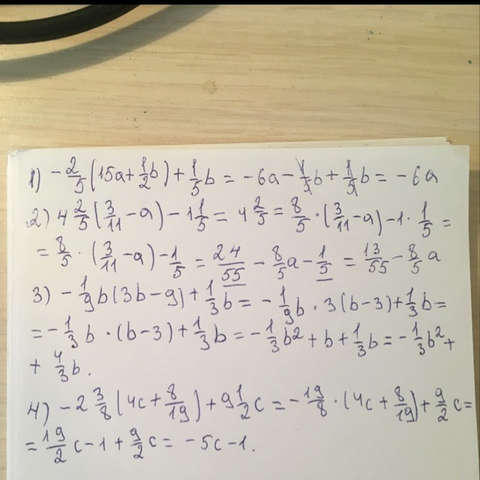 1) -2/5(15a+1/2b)+1/5b = -6a-1/5b+1/5b = -6a
2) 4 2/5(3/11-a)-1 1/5 = 4 2/5 = 8/5·(3/11-a)-1·1/5 =
= 8/5·(3/11-a)-1/5 = 24/55-8/5a-1/5 = 13/55-8/5a
3) -1/9b(3b-9)+1/3b = -1/9b·3(b-3)+1/3b =
= -1/3b·(b-3)+1/3b = -1/3b²+b+1/3b = -1/3b²+
+ 4/3b.
4) -2 3/8(4c+8/19)+9 1/2c = -19/8·(4c+8/19)+9/2c =
= 19/2c-1+9/2c = -5c-1.